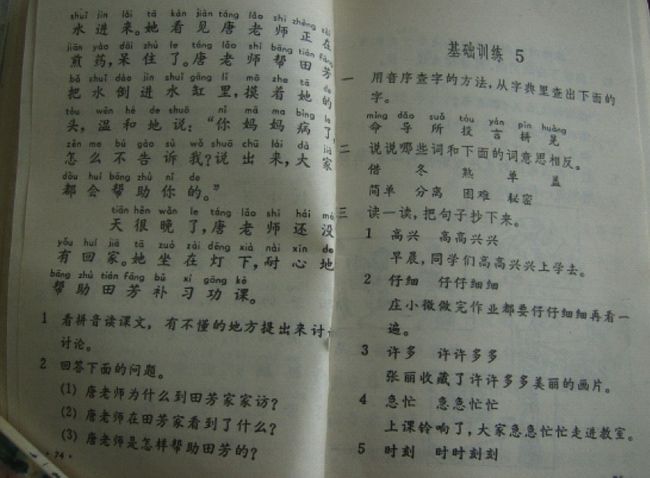 shuǐ jìn lái tā kàn jiàn táng lǎo shī zhèng zài
水进来。她看见唐老师正在
jiān yào dāi zhù le táng lǎo shī bāng tián fāng
煎药,呆住了。唐老师帮田芳
bǎ shuǐ dào jìn shuǐ gāng lǐ mō zhe tā de
把水倒进水缸里,摸着她的
tóu wēn hé de shuō nǐ mā ma bìng le
头,温和地说:“你妈妈病了
zěn me bú gào sù wǒ shuō chū lái dà jiā
怎么不告诉我?说出来,大家
dōu huì bāng zhù nǐ de
都会帮助你的。”
tiān hěn wǎn le táng lǎo shī hái méi
天很晚了,唐老师还没
yǒu huí jiā tā zuò zài dēng xià nài xīn de
有回家。她坐在灯下,耐心地
bāng zhù tián fāng bǔ xí gōng kè
帮助田芳补习功课。
1 看拼音读课文,有不懂的地方提出来讨
讨论。
2 回答下面的问题。
(1) 唐老师为什么到田芳家家访?
(2) 唐老师在田芳家看到了什么?
(3) 唐老师是怎样帮助田芳的?
· 74 ·
基础训练 5
一 用音序查字的方法,从字典里查出下面的
字。
mìng dǎo suǒ tóu yán pín huǎng
命 导 所 投 言
二 说说哪些词和下面的词意思相反。
借 冬 熟 单 盖
简单 分离 困难 秘密
三 读一读,把句子抄下来。
1 高兴 高高兴兴
早晨,同学们高高兴兴上学去。
2 仔细 仔仔细细
庄小微做完作业都要仔仔细细再看一
遍。
3 许多 许许多多
张丽收藏了许许多多美丽的画片。
4 急忙 急急忙忙
上课铃响了,大家急急忙忙走进教室。
5 时刻 时时刻刻